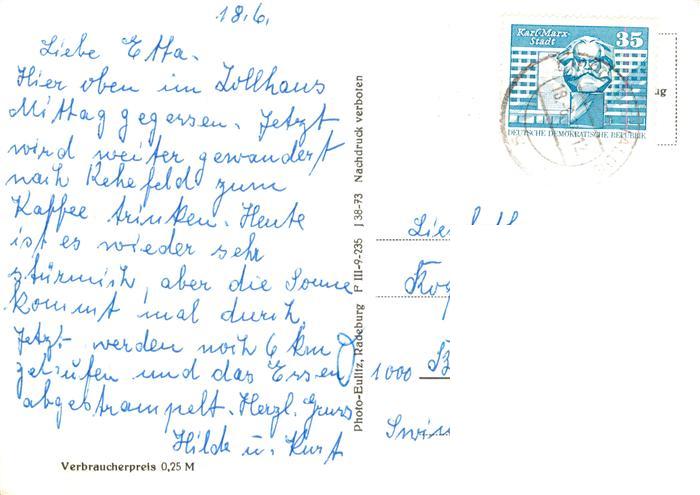 18.6.
Liebe Etta.
Hier oben im Zollhaus
Mittag gegessen. Jetzt
wird weiter gewandert
nach Rehefeld zum
Kaffee trinken. Heute
ist es wieder sehr
stürmisch, aber die Sonne
kommt mal durch.
Jetzt werden noch 6 km
gelaufen und das Essen
abgestrampelt. Herzl. Gruss
Hilde u. Kurt
Verbraucherpreis 0,25 M
Photo-Eulitz, Radeburg P III-9-235 J 38-73 Nachdruck verboten
Karl-Marx-
Stadt
35
DEUTSCHE DEMOKRATISCHE REPUBLIK
1000